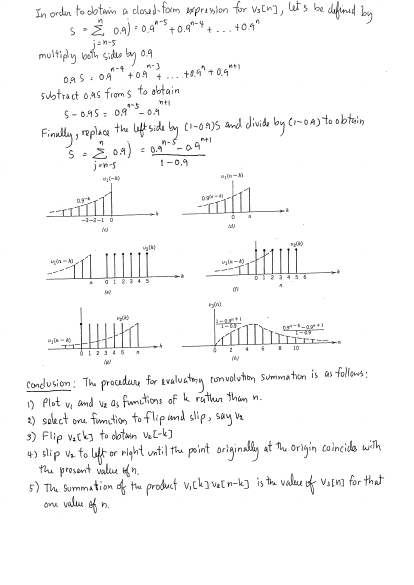 In order to obtain a closed-form expression for v₃[n], let's be defined by
S = Σ_{j=n-5}^{n} 0.9^j = 0.9^{n-5} + 0.9^{n-4} + ... + 0.9^n
multiply both sides by 0.9
0.9 S = 0.9^{n-4} + 0.9^{n-3} + .... + 0.9^n + 0.9^{n+1}
subtract 0.9S from S to obtain
S - 0.9S = 0.9^{n-5} - 0.9^{n+1}
Finally, replace the left side by (1-0.9)S and divide by (1-0.9) to obtain
S = Σ_{j=n-5}^{n} 0.9^j = (0.9^{n-5} - 0.9^{n+1}) / (1-0.9)
v₁(-k)
0.9^{-k}
-3 -2 -1 0
k
(c)
v₁(n-k)
0.9^{n-k}
0 n
k
(d)
v₁(n-k)
v₂(k)
n 0 1 2 3 4 5
k
(e)
v₁(n-k)
v₂(k)
0 1 2 3 4 5 6
n
k
(f)
v₁(n-k)
v₂(k)
0 1 2 3 4 5 n
k
(g)
v₃(n)
1-0.9^{n+1} / 1-0.9
0.9^{n-5}-0.9^{n+1} / 1-0.9
0 2 4 6 8 10
n
(h)
Conclusion: The procedure for evaluating convolution summation is as follows:
1) Plot v₁ and v₂ as functions of k rather than n.
2) select one function to flip and slip, say v₂
3) Flip v₂[k] to obtain v₂[-k]
4) slip v₂ to left or right until the point originally at the origin coincides with
the present value of n.
5) The summation of the product v₁[k] v₂[n-k] is the value of v₃[n] for that
one value of n.